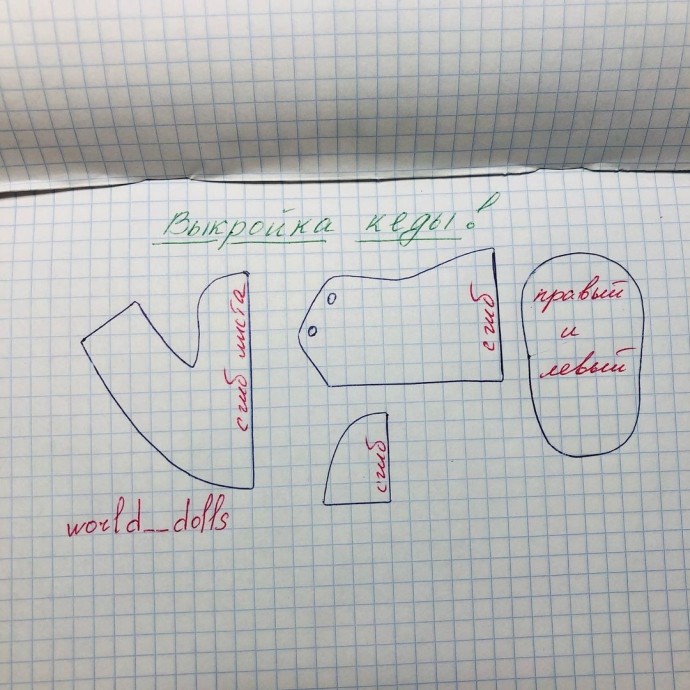 Выкройка кеды!
сгиб листа
сгиб
правый
и
левый
сгиб
world__dolls